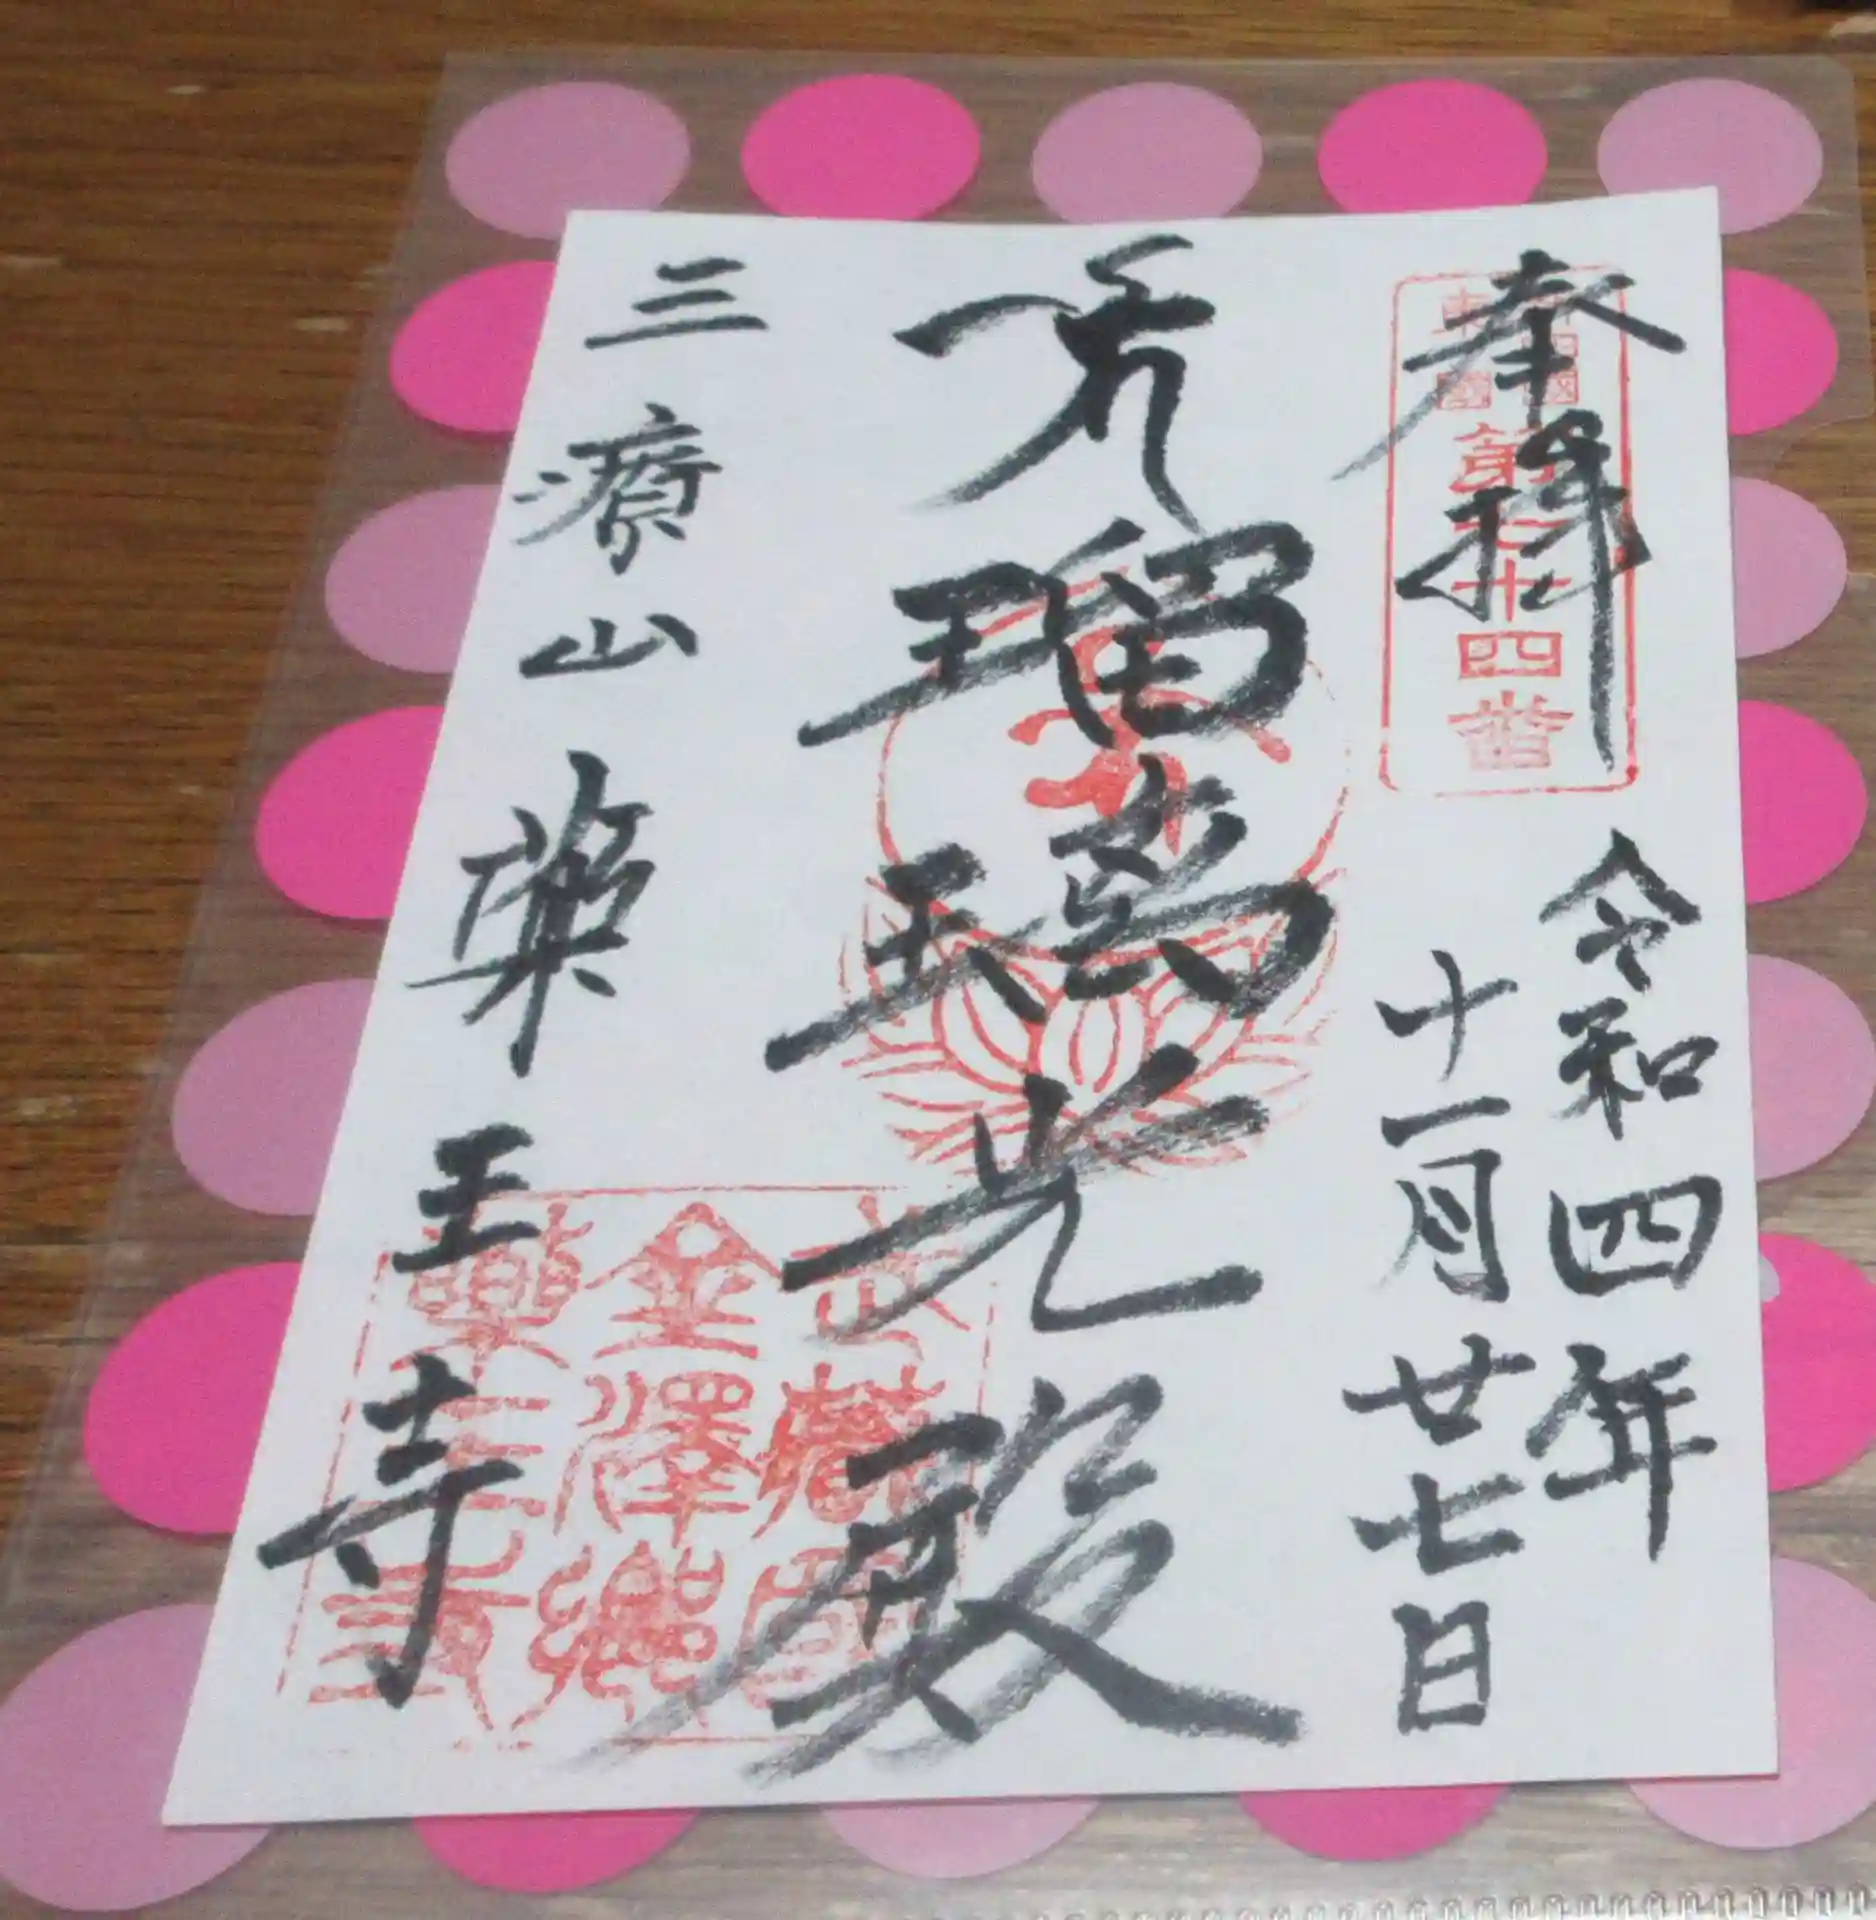 奉拝
第七十四番
令和四年
十一月廿七日
瑠璃光殿
武藏國
金澤郷
藥王寺
三療山
薬王寺